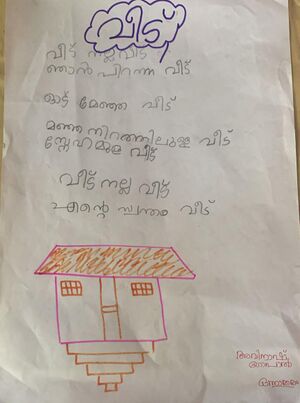 വീട്
വീട് നല്ലവീട്
ഞാൻ പിറന്ന വീട്
ഓട് മേഞ്ഞ വീട്
മഞ്ഞ നിറത്തിലുള്ള വീട്
സ്നേഹമുള്ള വീട്
വീട് നല്ല വീട്
എന്റെ സ്വന്തം വീട്